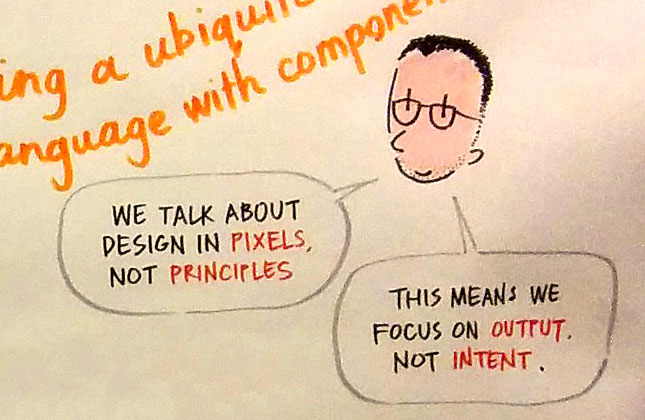 ing a
language with
WE TALK ABOUT
DESIGN IN PIXELS,
NOT PRINCIPLES
THIS MEANS WE
FOCUS ON OUTPUT,
NOT INTENT.